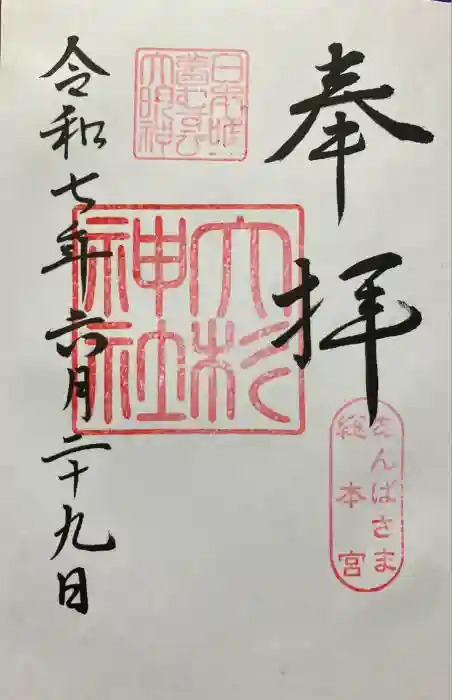 奉拝
あんばさま
総本宮
日本唯一
夢むすび
大明神
大杉
神社
令和七年六月二十九日